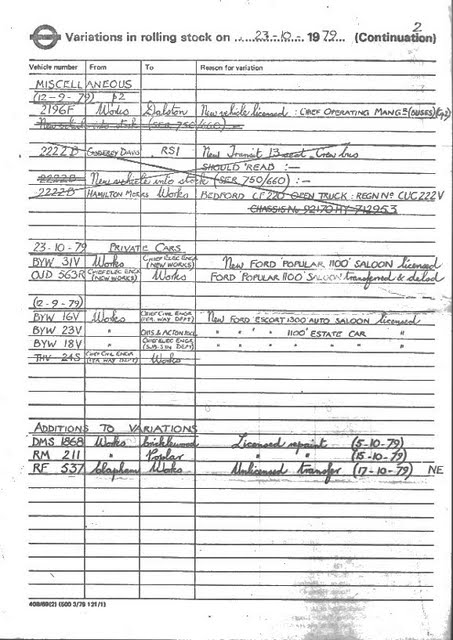 2
Variations in rolling stock on 23-10- 1979 (Continuation)
Vehicle number From To Reason for variation
MISCELLANEOUS
(12-9-79) p2
2196F Works Dalston New vehicle licensed : CHIEF OPERATING MANGR (BUSES)
New vehicle into stock (SER 750/660)
2222B GODFREY DAVIS RSI New Transit 13 seat Crew bus
SHOULD READ :-
2222B New vehicle into stock (SER 750/660) :-
2222B HAMILTON MOTORS Works BEDFORD CF 220 OPEN TRUCK : REGN No CUC 222V
CHASSIS No 92170 HY 712953
23-10-79 PRIVATE CARS
BYW 31V Works CHIEF ELEC ENGR (NEW WORKS) New FORD 'POPULAR 1100' SALOON licensed
OJD 563R CHIEF ELEC ENGR (NEW WORKS) Works FORD 'POPULAR 1100' SALOON transferred & delcd
(12-9-79)
BYW 16V Works CHIEF CIVIL ENGR (PER. WAY DEPT) New FORD 'ESCORT 1300 AUTO SALOON licensed
BYW 23V " " " " 1100' ESTATE CAR "
BYW 18V " CHIEF ELEC ENGR " " " " " "
THV 24S CHIEF CIVIL ENGR (PER WAY DEPT) Works
ADDITIONS TO VARIATIONS
DMS 1868 Works Cricklewood Licensed repaint (5-10-79)
RM 211 " Poplar " " (15-10-79)
RF 537 Clapham Works Unlicensed transfer (17-10-79) NE
409/69(2) (500 3/79 121/1)